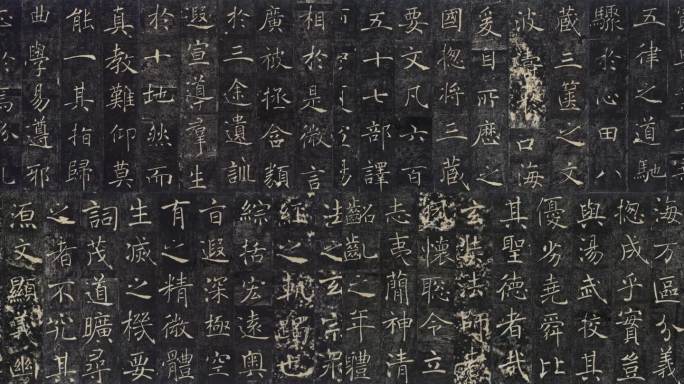 五律之道馳
驟於心田八
藏三篋之文
波濤於口海
爰自所歷之
國摠將三藏
要文凡六百
五十七部譯
相於是微言
廣被拯含類
於三途遺訓
遐宣導羣生
於十地然而
真教難仰莫
能一其指歸
曲學易遵邪
海万區分義
摠成乎實豈
與湯武校其
優劣堯舜比
其聖德者哉
玄奘法師者
夙懷聰令立
志夷簡神清
齠齔之年體
法之玄宗衆
經之軌躅也
綜括宏遠奥
旨遐深極空
有之精微體
生滅之機要
詞茂道曠尋
之者不究其
源文顯義幽